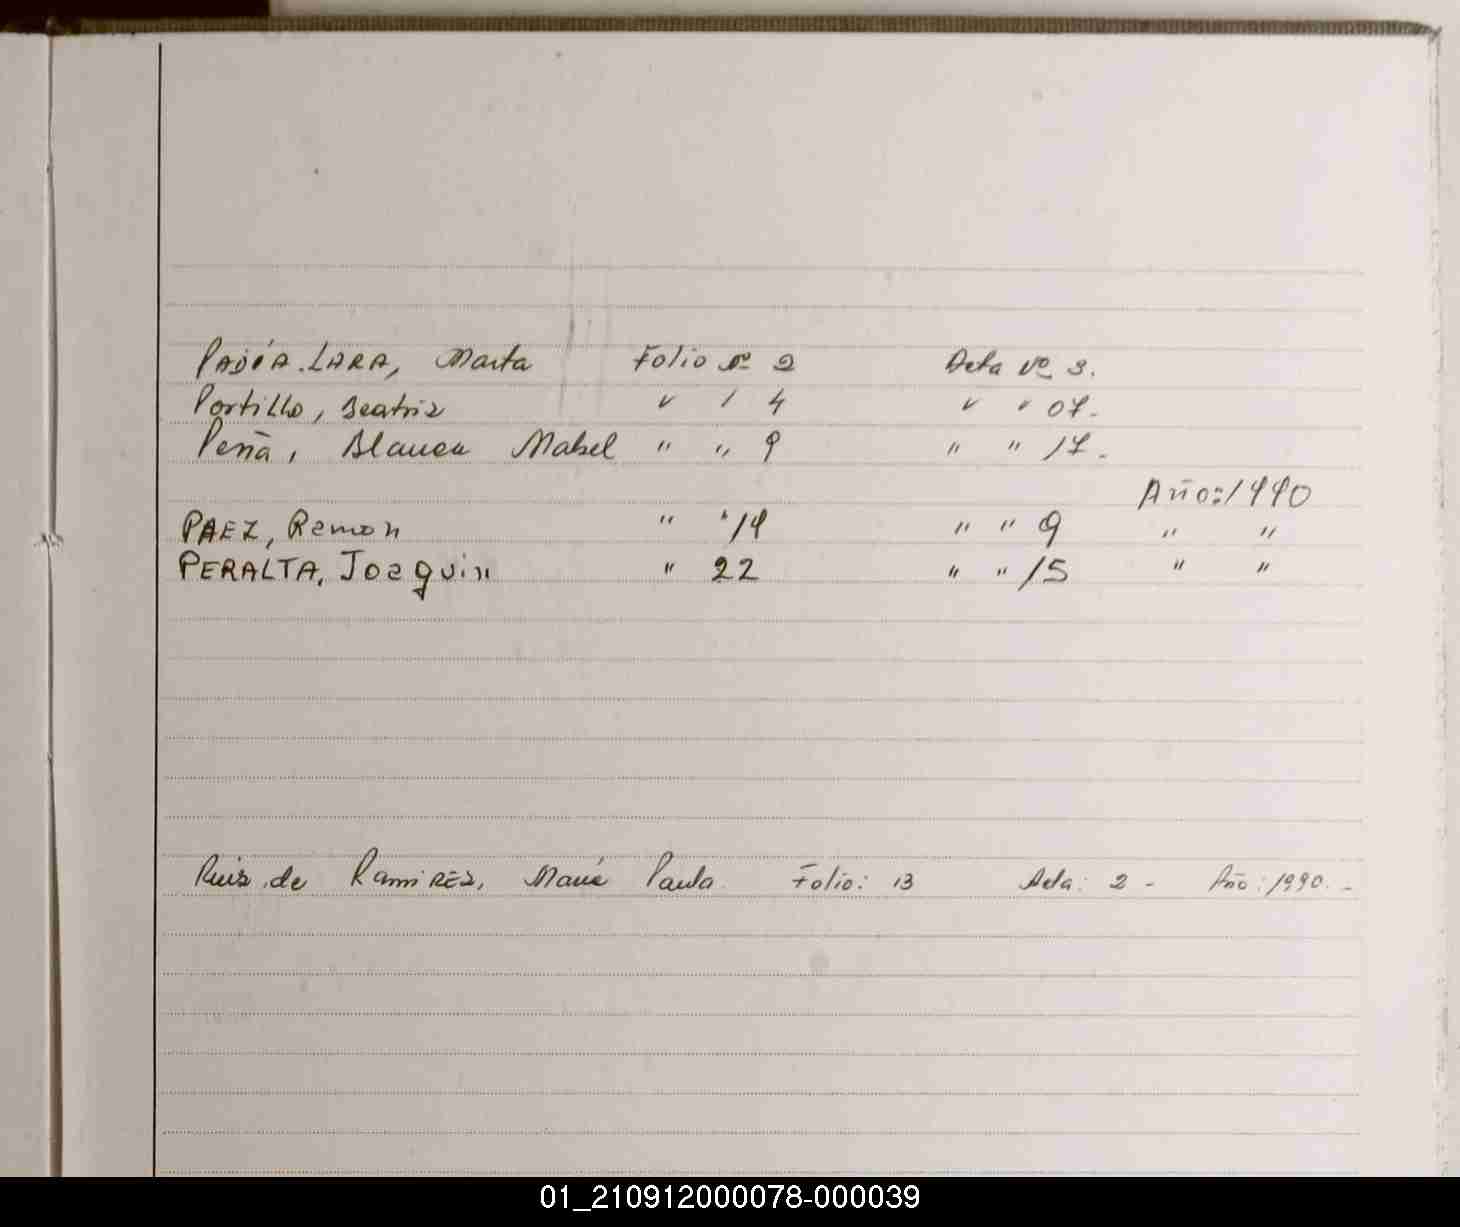 Lara, Marta Folio Nº 2 Acta Nº 3.
Portillo, Beatriz " " 4 " " 07.
Peña, Blanca Mabel " " 9 " " 17.
Año: 1990
PAEZ, Ramon " " 19 " " 9 " "
PERALTA, Joaquin " 22 " " 15 " "
Ruiz de RAMIREZ, María Paula Folio: 13 Acta: 2 - Año: 1990. -
01_210912000078-000039